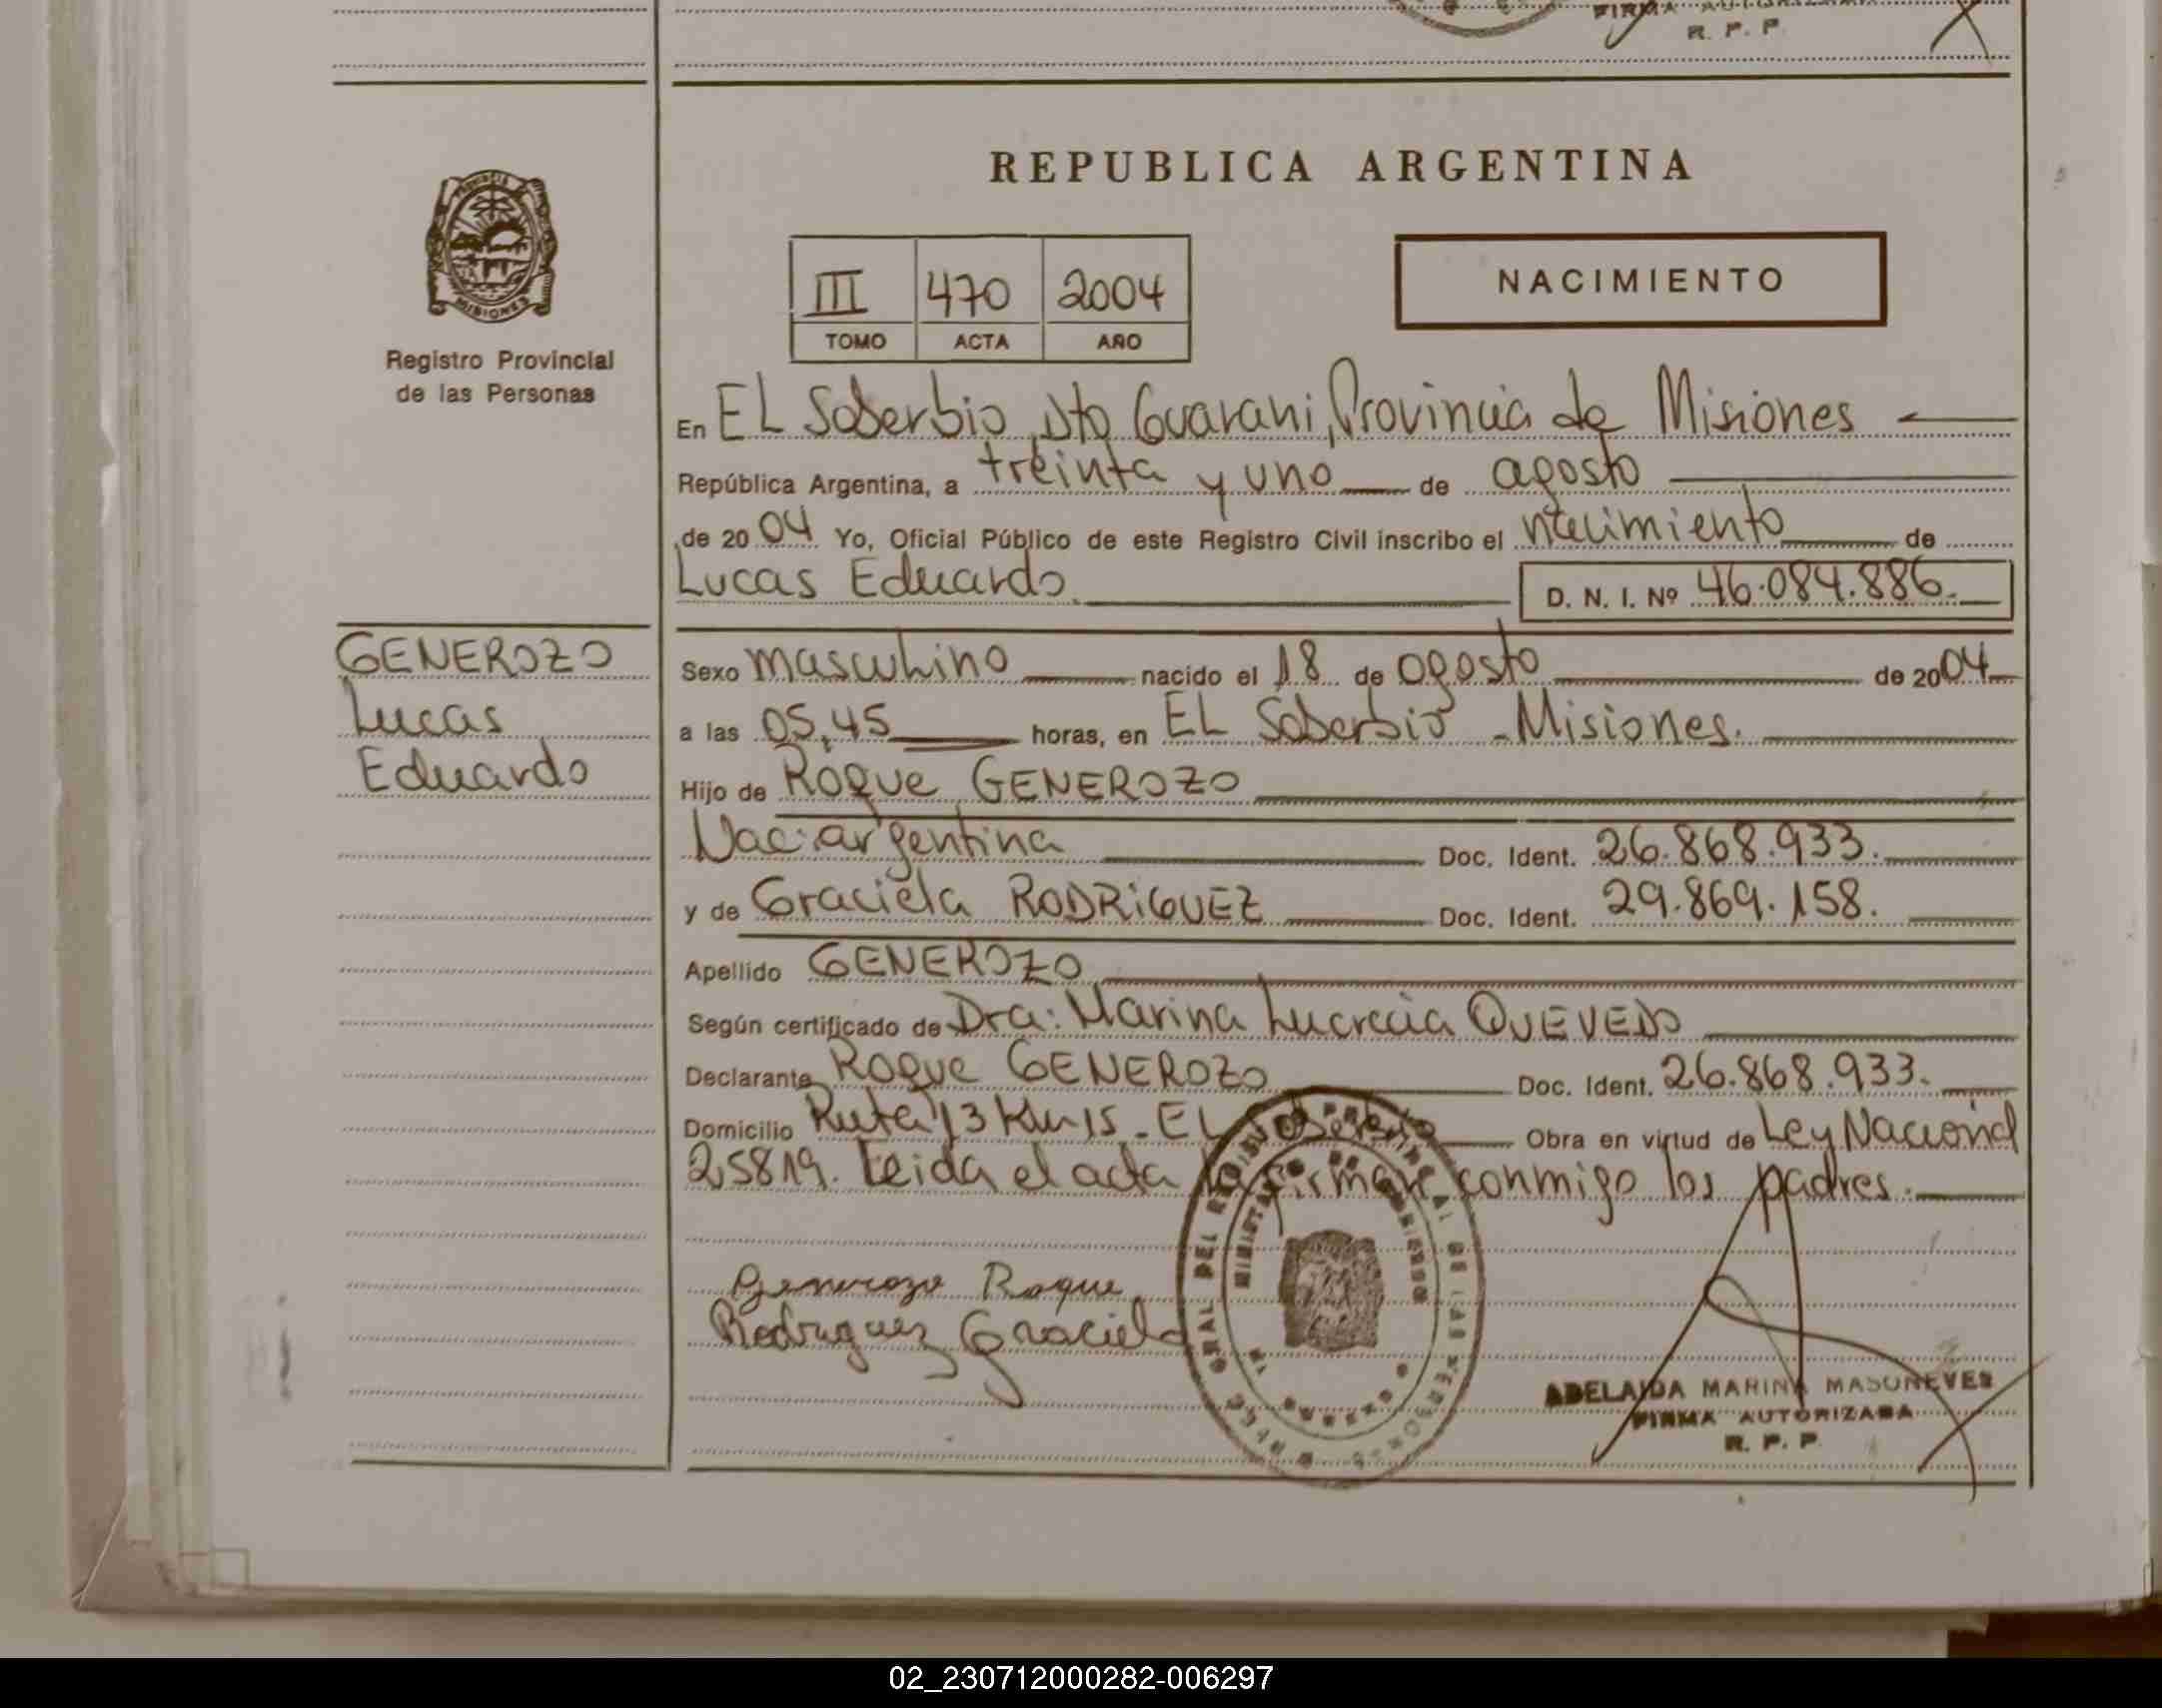 FIRMA AUTORIZADA
R. P. P
REPUBLICA ARGENTINA
MISIONES
Registro Provincial
de las Personas
III 470 2004
TOMO ACTA AÑO
NACIMIENTO
En EL Soberbio, Dto Guarani, Provincia de Misiones
República Argentina, a treinta y uno de agosto
de 2004 Yo, Oficial Público de este Registro Civil inscribo el nacimiento de
Lucas Eduardo. D. N. I. Nº 46.084.886.
GENEROZO
Lucas
Eduardo
Sexo masculino nacido el 18 de agosto de 2004
a las 05,45 horas, en EL Soberbio - Misiones.
Hijo de Roque GENEROZO
Nac: argentina Doc. Ident. 26.868.933.
y de Graciela RODRIGUEZ Doc. Ident. 29.869.158.
Apellido GENEROZO
Según certificado de Dra: Marina Lucrecia QUEVEDO
Declarante Roque GENEROZO Doc. Ident. 26.868.933.
Domicilio Ruta 13 Km 15 - EL Soberbio Obra en virtud de Ley Nacional
25819. Leida el acta la firman conmigo los padres.
Generozo Roque
Rodriguez Graciela
ADELAIDA MARINA MASONEVES
FIRMA AUTORIZADA
R. P. P
02_230712000282-006297